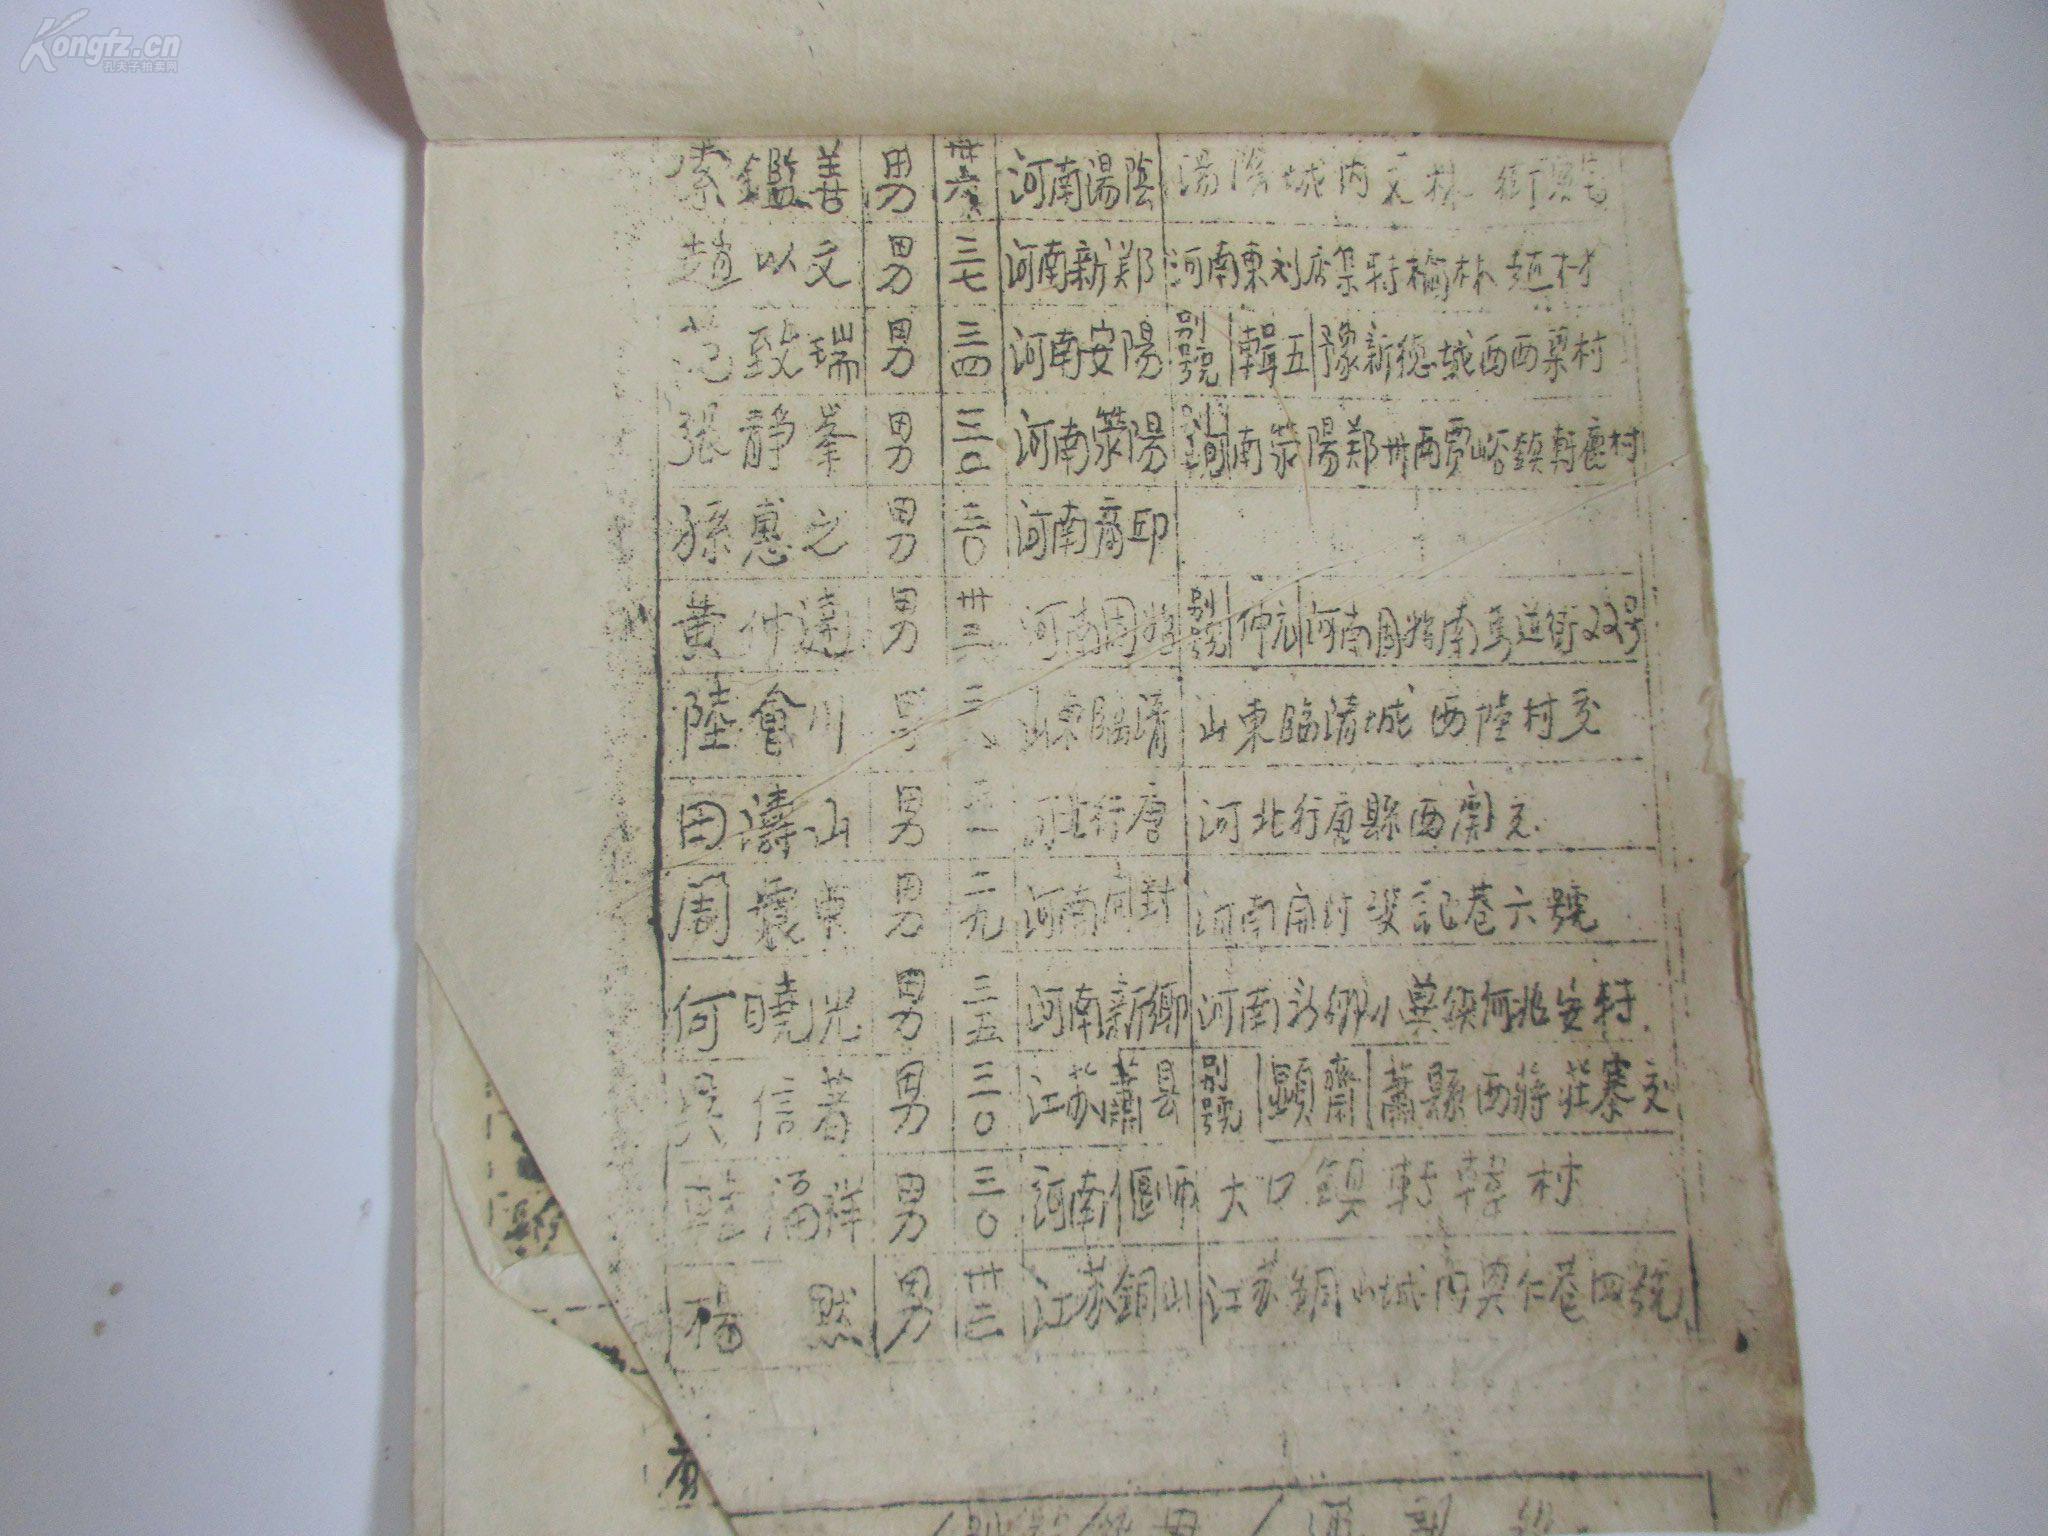 Kongfz.cn
孔夫子拍卖网
索鑑善 男 卅六 河南湯陰 湯陰城内文林街
趙以文 男 三七 河南新郑 河南東刘店集特榆林趙村
范致瑞 男 三四 河南安陽 别號 輯五 豫新德城西西梁村
張靜峯 男 三〇 河南滎陽 河南滎陽郑州西贾峪鎮村
孫惠之 男 三〇 河南商邱
黄仲達 男 卅三 河南 别號 仲 河南南馬道街双号
陸會川 男 二八 山東臨清 山東臨清城西陸村交
田濤山 男 三一 河北行唐 河北行唐縣西關交
周震東 男 二九 河南開封 河南開封記巷六號
何曉光 男 三五 河南新鄉 河南新鄉小鎮何兆安轉
吴信著 男 三〇 江苏蕭县 别號 顯齋 蕭縣西蔣莊寨交
福祥 男 三〇 河南偃师 大口鎮轉韓村
楊默 男 卅三 江苏銅山 江苏銅山城内興仁巷四號